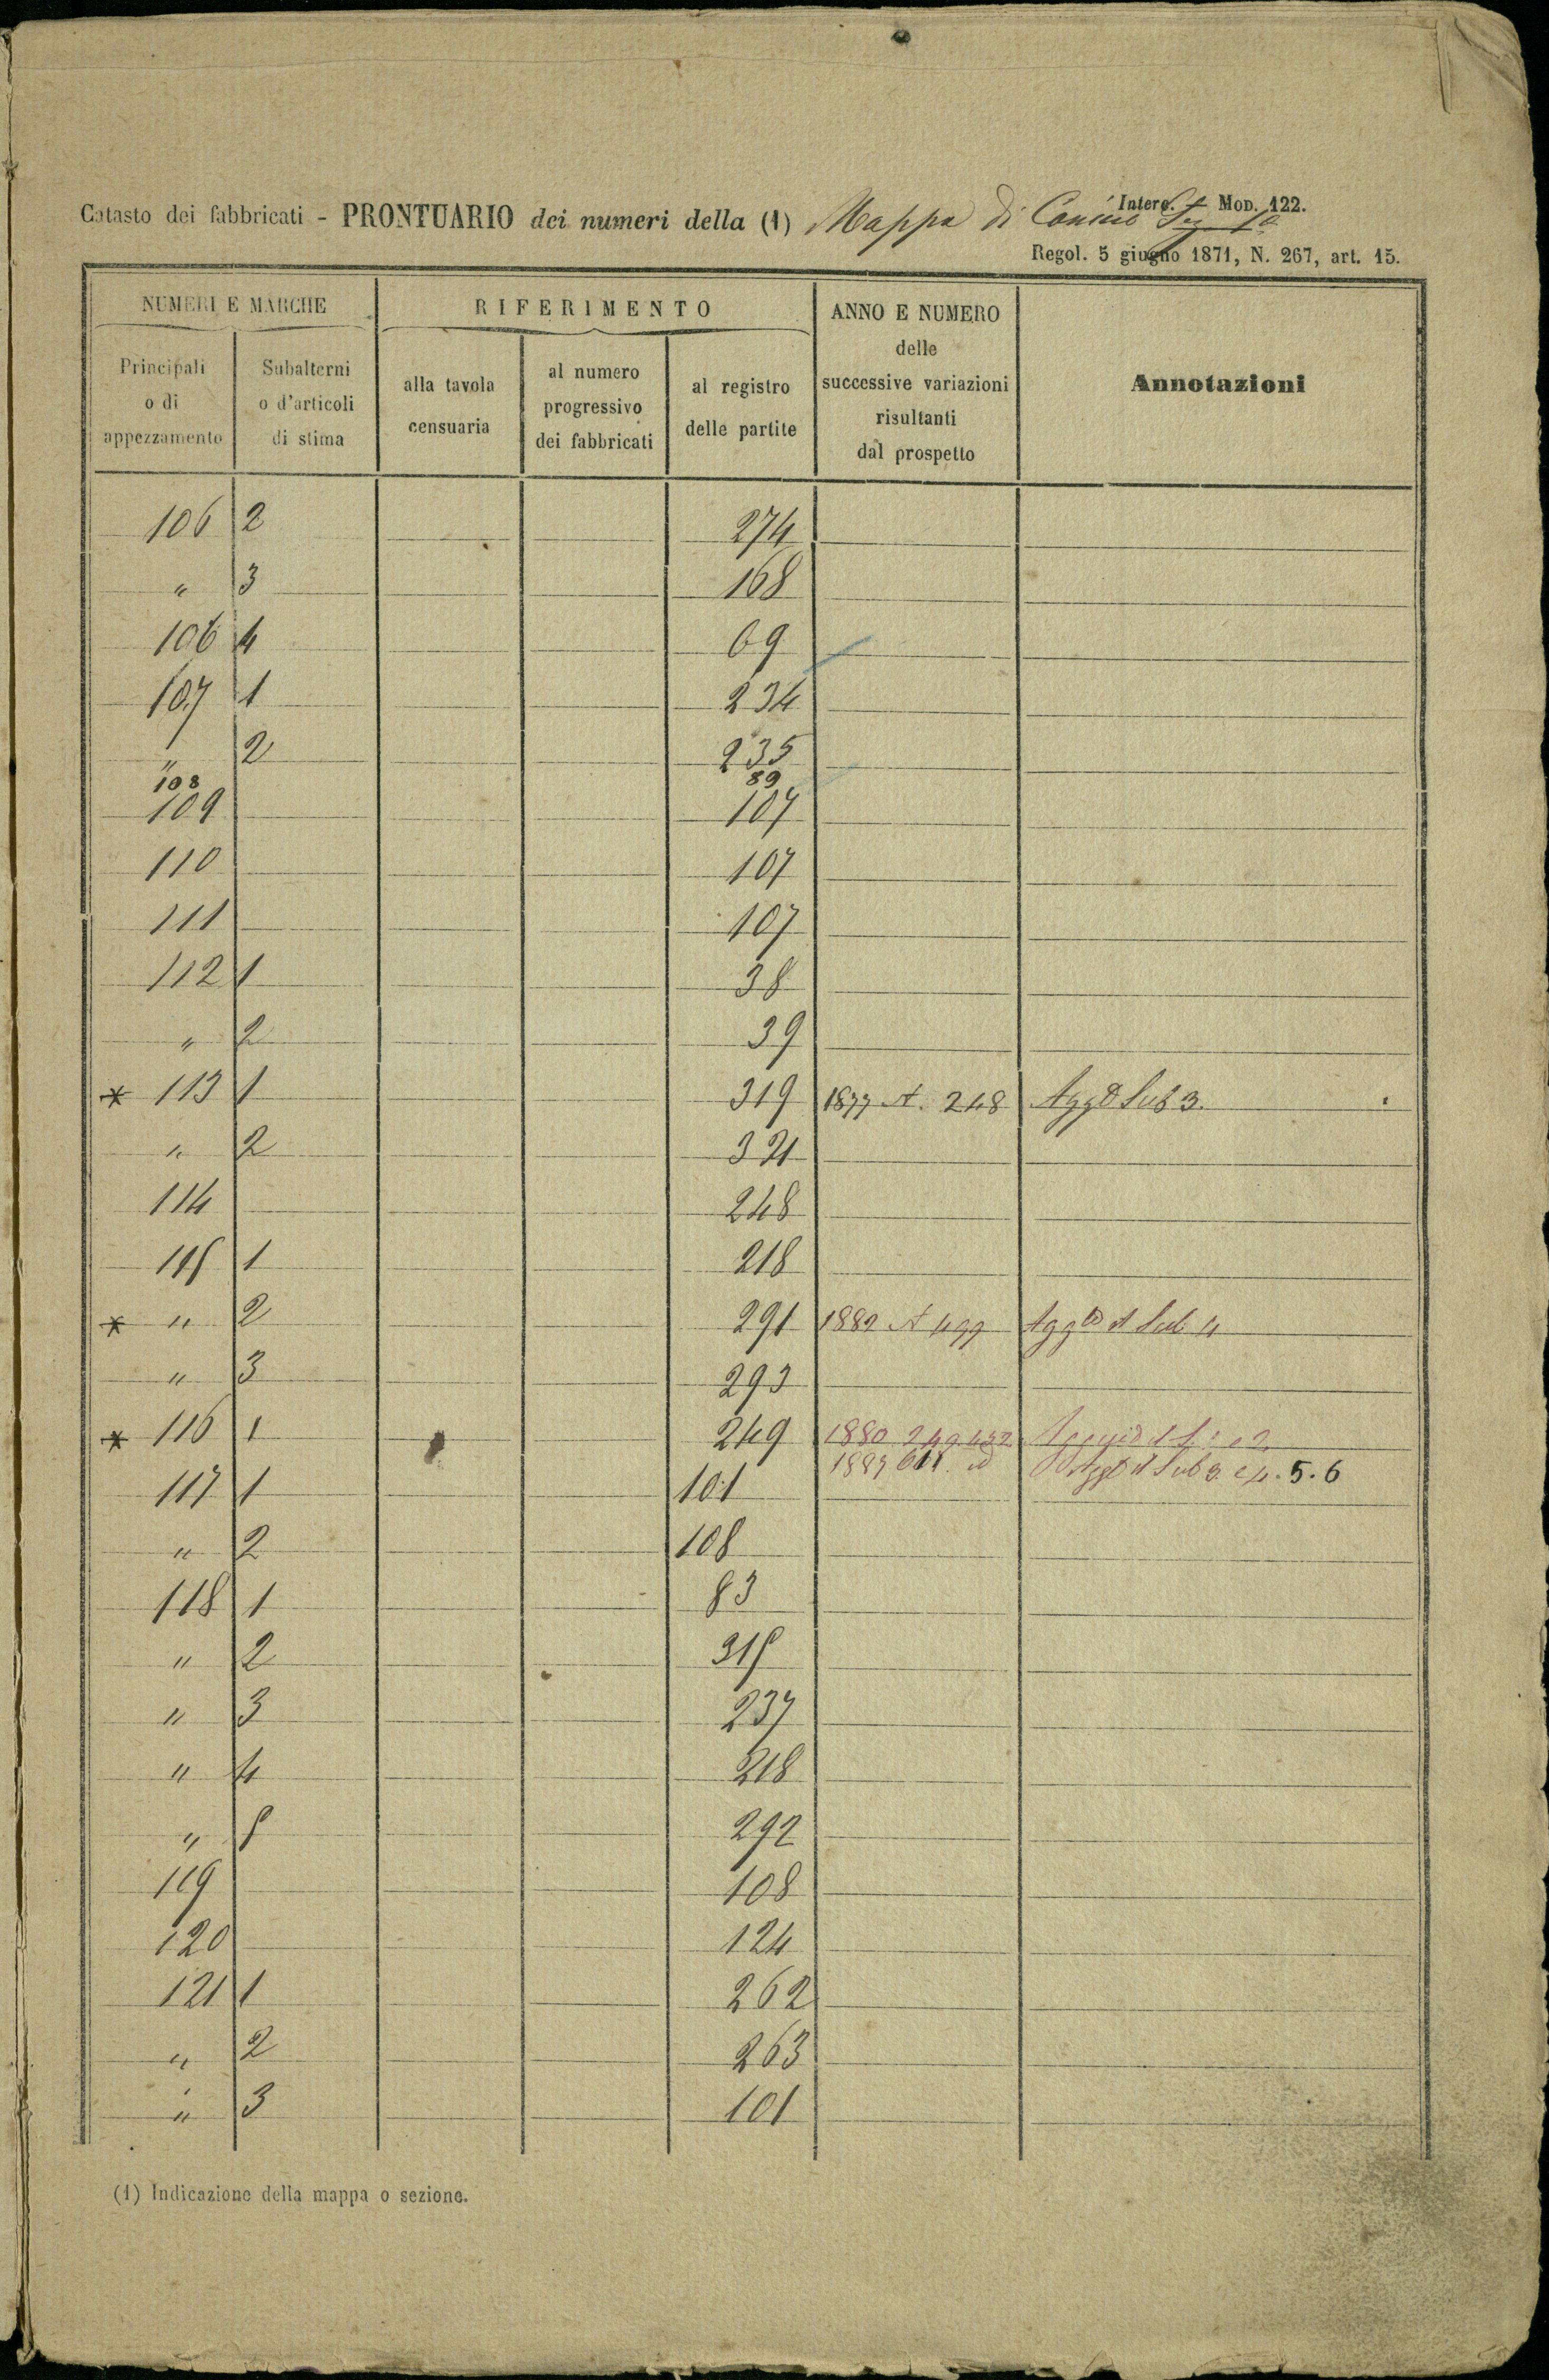 Interc. Mod. 122.
Catasto dei fabbricati - PRONTUARIO dei numeri della (1) Mappa di Canino Sez 1a
Regol. 5 giugno 1871, N. 267, art. 15.
NUMERI E MARCHE
RIFERIMENTO
ANNO E NUMERO
delle
successive variazioni
risultanti
dal prospetto
Annotazioni
Principali
o di
appezzamento
Subalterni
o d'articoli
di stima
alla tavola
censuaria
al numero
progressivo
dei fabbricati
al registro
delle partite
106 2 274
" 3 168
106 4 69
107 1 234
" 2 235
108 89
109 107
110 107
111 107
112 1 38
" 2 39
* 113 1 319 1877 A. 248 Aggto Sub 3.
" 2 321
114 248
115 1 218
* " 2 291 1882 A 499 Aggto A Sub 4
" 3 293
* 116 1 249 1880 249.432
1887 611 Aggto il Sub 3. e 4. 5. 6
117 1 101
" 2 108
118 1 83
" 2 315
" 3 237
" 4 218
" 5 292
119 108
120 124
121 1 262
" 2 263
" 3 101
(1) Indicazione della mappa o sezione.